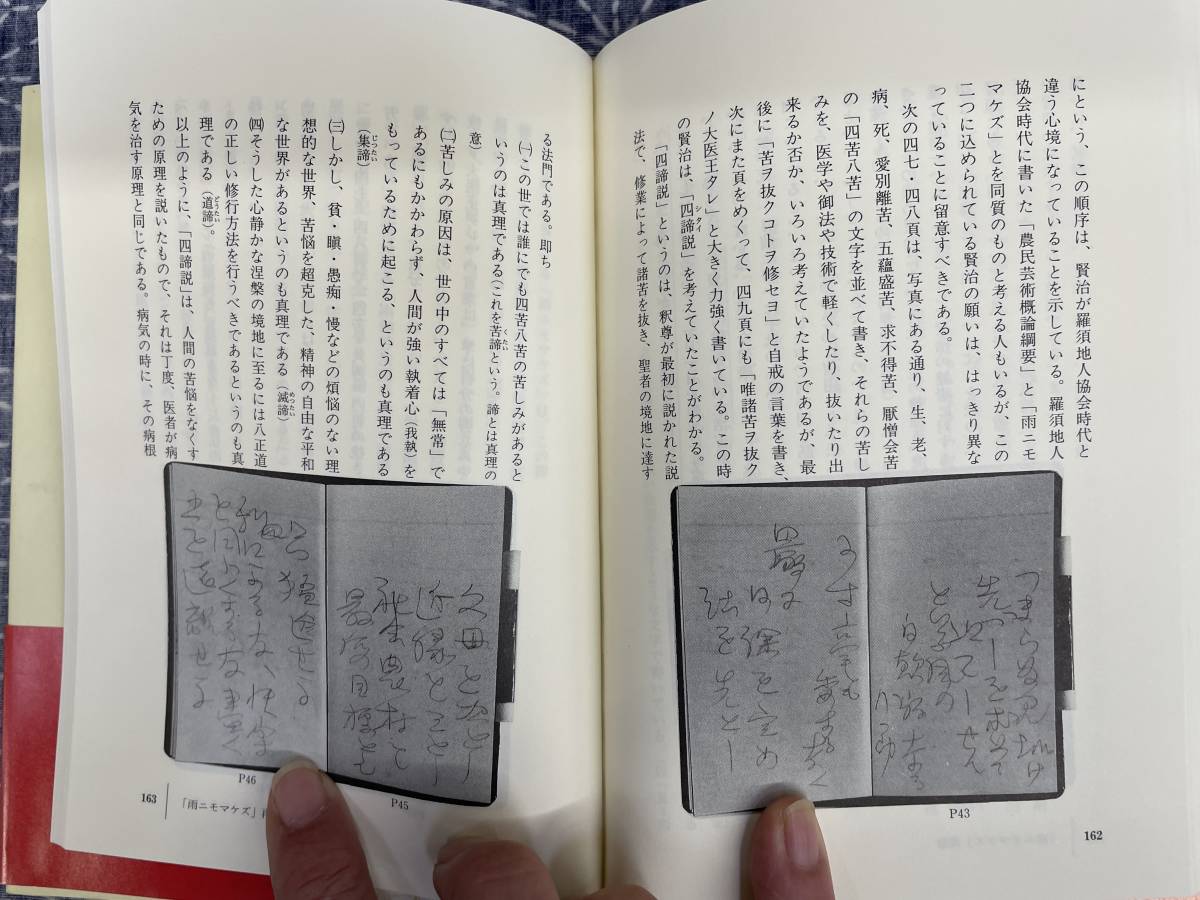 にという、この順序は、賢治が羅須地人協会時代と
違う心境になっていることを示している。羅須地人
協会時代に書いた「農民芸術概論綱要」と「雨ニモ
マケズ」とを同質のものと考える人もいるが、この
二つに込められている賢治の願いは、はっきり異な
っていることに留意すべきである。
次の四七・四八頁は、写真にある通り、生、老、
病、死、愛別離苦、五蘊盛苦、求不得苦、厭憎会苦
の「四苦八苦」の文字を並べて書き、それらの苦し
みを、医学や御法や技術で軽くしたり、抜いたり出
来るか否か、いろいろ考えていたようであるが、最
後に「苦ヲ抜クコトヲ修セヨ」と自戒の言葉を書き、
次にまた頁をめくって、四九頁にも「唯諸苦ヲ抜ク
ノ大医王タレ」と大きく力強く書いている。この時
の賢治は、「四諦説」を考えていたことがわかる。
シタイ
「四諦説」というのは、釈尊が最初に説かれた説
法で、修業によって諸苦を抜き、聖者の境地に達す
P43
162
る法門である。即ち
㈠この世では誰にでも四苦八苦の苦しみがあると
いうのは真理である(これを苦諦という。諦とは真理の
くたい
意)
㈡苦しみの原因は、世の中のすべては「無常」で
あるにもかかわらず、人間が強い執着心(我執)を
もっているために起こる、というのも真理である
(集諦)
じったい
㈢しかし、貧・瞋・愚痴・慢などの煩悩のない理
想的な世界、苦悩を超克した、精神の自由な平和
な世界があるというのも真理である(滅諦)
めったい
㈣そうした心静かな涅槃の境地に至るには八正道
の正しい修行方法を行うべきであるというのも真
理である(道諦)。
どうたい
以上のように、「四諦説」は、人間の苦悩をなくす
ための原理を説いたもので、それは丁度、医者が病
気を治す原理と同じである。病気の時に、その病根
父母と
近縁と
最后の目標も
P45
P46
163
「雨ニモマケズ」